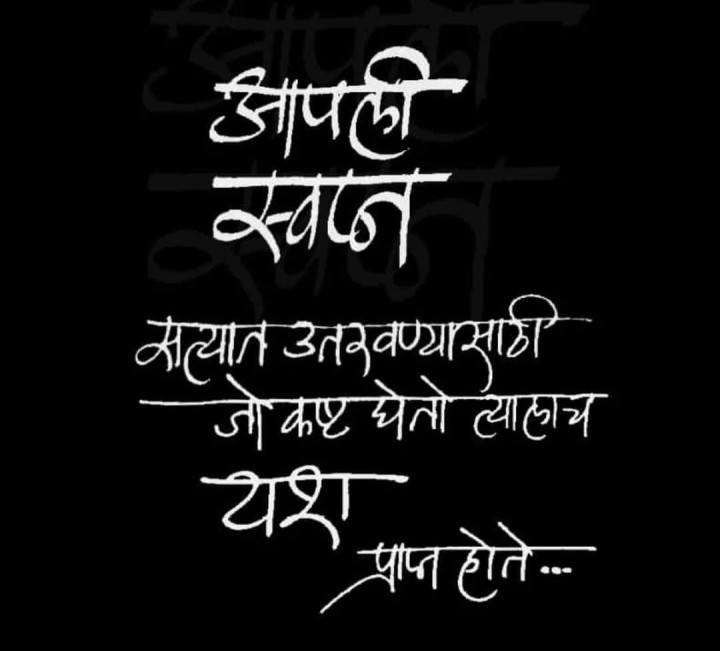 आपली
स्वप्न
सत्यात उतरवण्यासाठी
जो कष्ट घेतो त्यालाच
यश
प्राप्त होते...